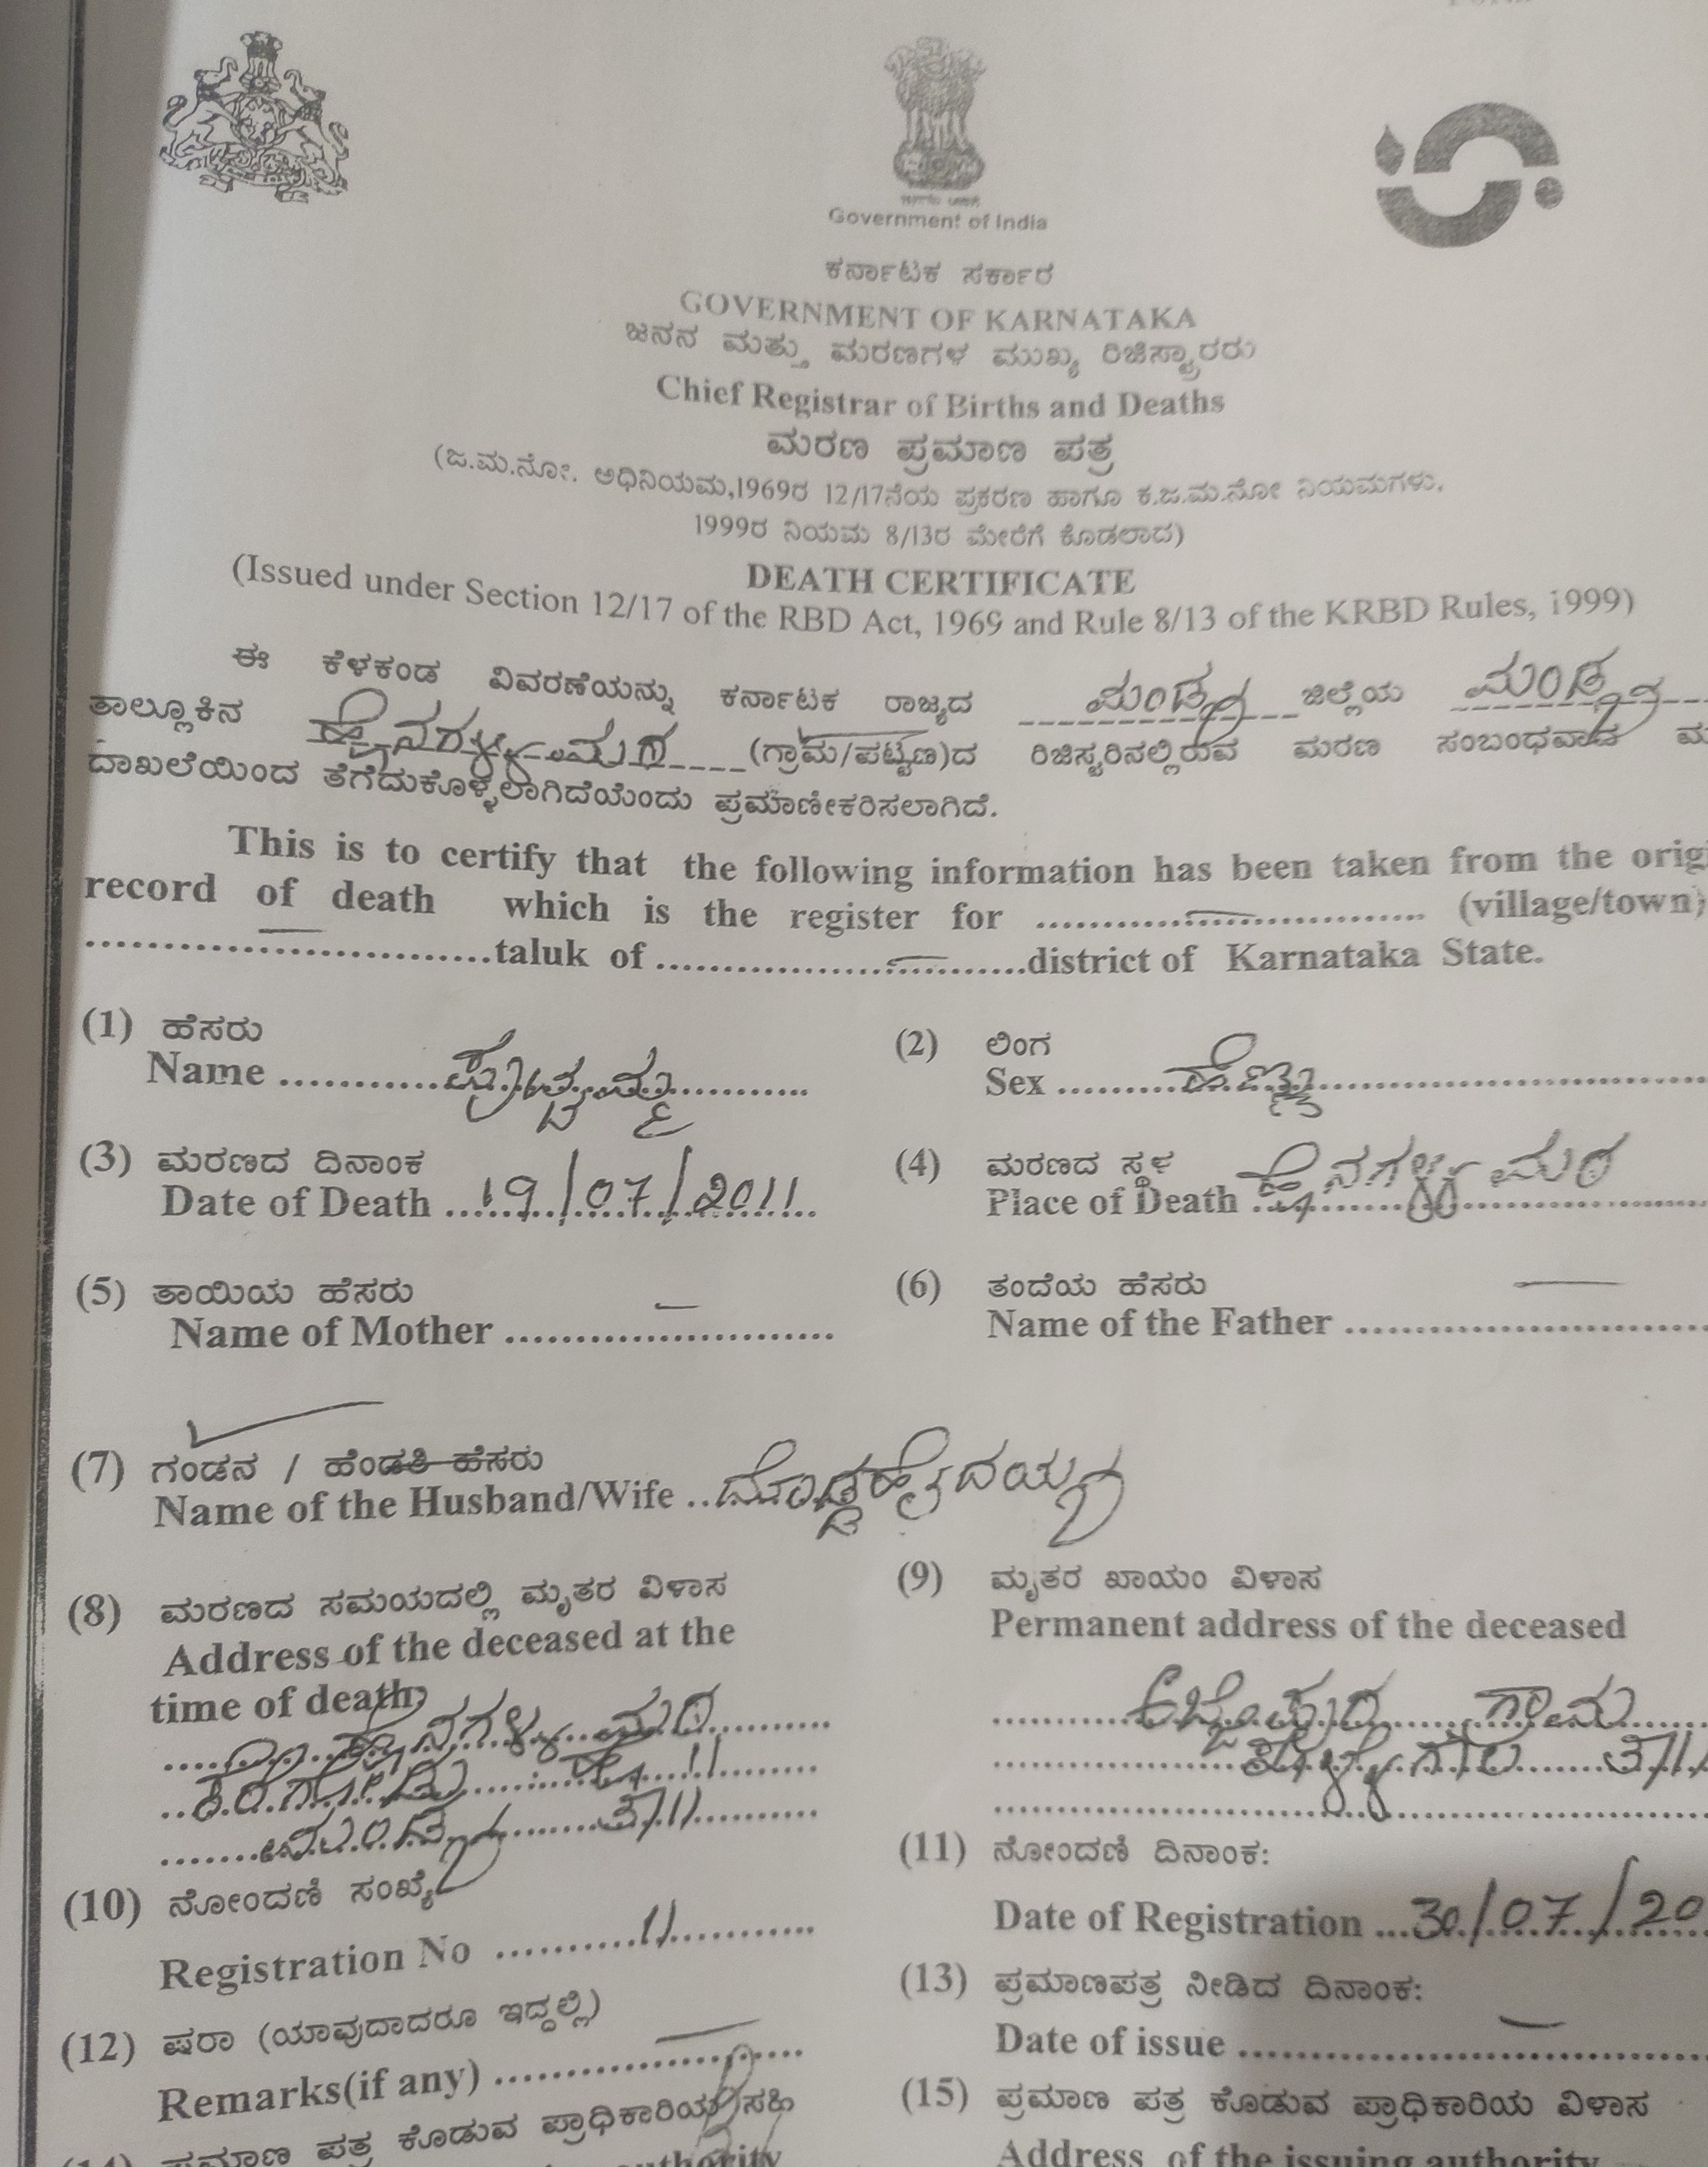 Government of India
ಕರ್ನಾಟಕ ಸರ್ಕಾರ
GOVERNMENT OF KARNATAKA
ಜನನ ಮತ್ತು ಮರಣಗಳ ಮುಖ್ಯ ರಿಜಿಸ್ಟ್ರಾರರು
Chief Registrar of Births and Deaths
ಮರಣ ಪ್ರಮಾಣ ಪತ್ರ
(ಜ.ಮ.ನೋ. ಅಧಿನಿಯಮ,1969ರ 12/17ನೆಯ ಪ್ರಕರಣ ಹಾಗೂ ಕ.ಜ.ಮ.ನೋ ನಿಯಮಗಳು.
1999ರ ನಿಯಮ 8/13ರ ಮೇರೆಗೆ ಕೊಡಲಾದ)
DEATH CERTIFICATE
(Issued under Section 12/17 of the RBD Act, 1969 and Rule 8/13 of the KRBD Rules, 1999)
ಈ ಕೆಳಕಂಡ ವಿವರಣೆಯನ್ನು ಕರ್ನಾಟಕ ರಾಜ್ಯದ ಮಂಡ್ಯ ಜಿಲ್ಲೆಯ ಮಂಡ್ಯ
ತಾಲ್ಲೂಕಿನ ಹೈನಗಳ್ಳಿ ಮಠ (ಗ್ರಾಮ/ಪಟ್ಟಣ)ದ ರಿಜಿಸ್ಟರಿನಲ್ಲಿರುವ ಮರಣ ಸಂಬಂಧವಾದ
ದಾಖಲೆಯಿಂದ ತೆಗೆದುಕೊಳ್ಳಲಾಗಿದೆಯೆಂದು ಪ್ರಮಾಣೀಕರಿಸಲಾಗಿದೆ.
This is to certify that the following information has been taken from the origi
record of death which is the register for .............................. (village/town)
..............................taluk of ............................district of Karnataka State.
(1) ಹೆಸರು
Name ಪುಟ್ಟಮ್ಮ
(2) ಲಿಂಗ
Sex ಹೆಣ್ಣು
(3) ಮರಣದ ದಿನಾಂಕ
Date of Death 19/07/2011
(4) ಮರಣದ ಸ್ಥಳ
Place of Death ಹೈನಗಳ್ಳಿ ಮಠ
(5) ತಾಯಿಯ ಹೆಸರು
Name of Mother ........................
(6) ತಂದೆಯ ಹೆಸರು
Name of the Father ........................
(7) ಗಂಡನ / ಹೆಂಡತಿ ಹೆಸರು
Name of the Husband/Wife ದೊಡ್ಡಹೈದಯ್ಯ
(8) ಮರಣದ ಸಮಯದಲ್ಲಿ ಮೃತರ ವಿಳಾಸ
Address of the deceased at the
time of death
ಮಠ
ಕೆರಗೋಡು ಹೋ||
ಮಂಡ್ಯ ತಾ||
(9) ಮೃತರ ಖಾಯಂ ವಿಳಾಸ
Permanent address of the deceased
ಗ್ರಾಮ
ತಾ||
(10) ನೋಂದಣಿ ಸಂಖ್ಯೆ
Registration No 11
(11) ನೋಂದಣಿ ದಿನಾಂಕ:
Date of Registration ...30/07/20
(12) ಷರಾ (ಯಾವುದಾದರೂ ಇದ್ದಲ್ಲಿ)
Remarks(if any) ......................
(13) ಪ್ರಮಾಣಪತ್ರ ನೀಡಿದ ದಿನಾಂಕ:
Date of issue ..............................
ಪ್ರಮಾಣ ಪತ್ರ ಕೊಡುವ ಪ್ರಾಧಿಕಾರಿಯ ಸಹಿ
(15) ಪ್ರಮಾಣ ಪತ್ರ ಕೊಡುವ ಪ್ರಾಧಿಕಾರಿಯ ವಿಳಾಸ
Address of the issuing authority